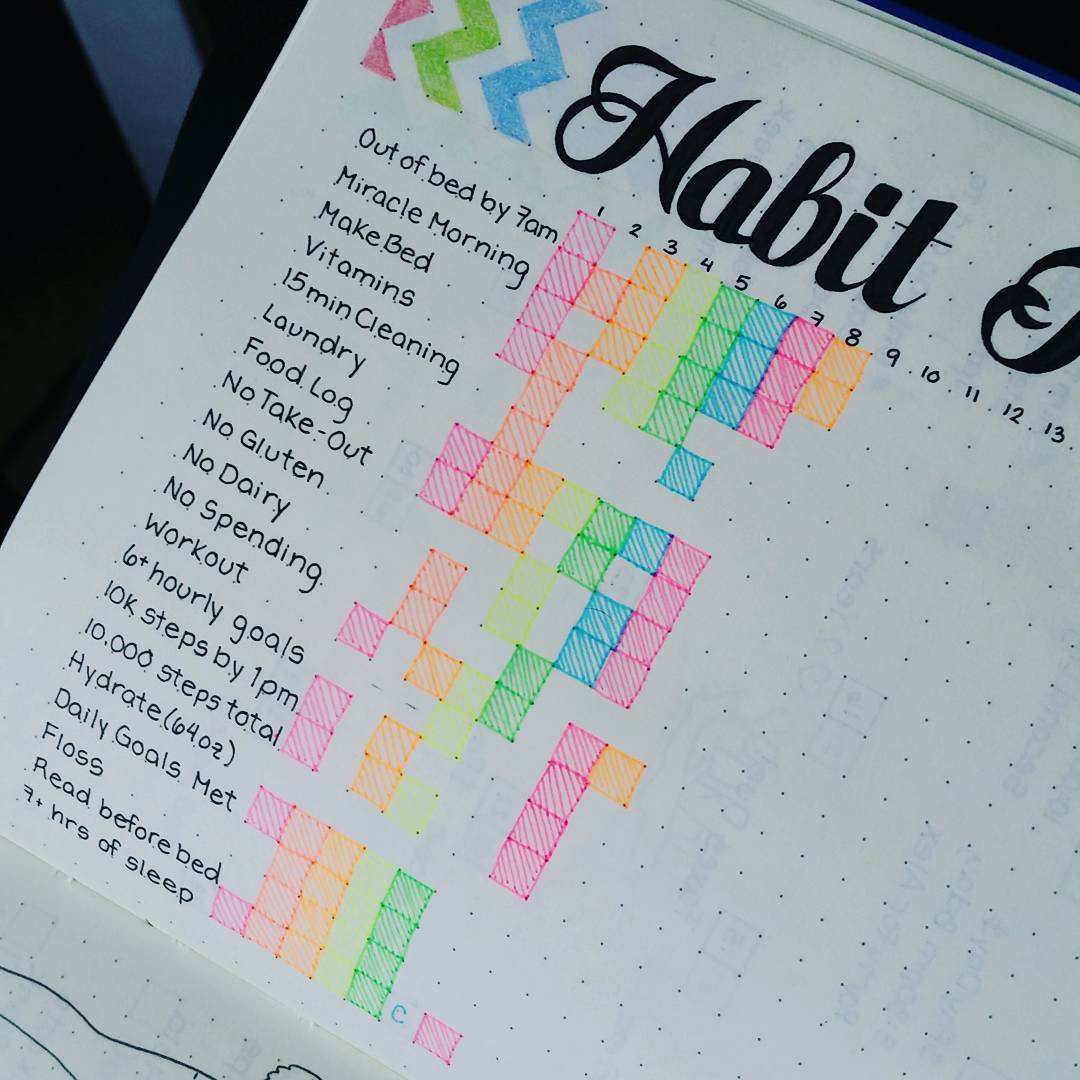 Habit
1 2 3 4 5 6 7 8 9 10 11 12 13
Out of bed by 7am
Miracle Morning
Make Bed
Vitamins
15 min Cleaning
Laundry
Food Log
No Take-Out
No Gluten
No Dairy
No Spending
Workout
6+ hourly goals
10K steps by 1pm
10,000 steps total
Hydrate (64oz)
Daily Goals Met
Floss
Read before bed
7+ hrs of sleep
C